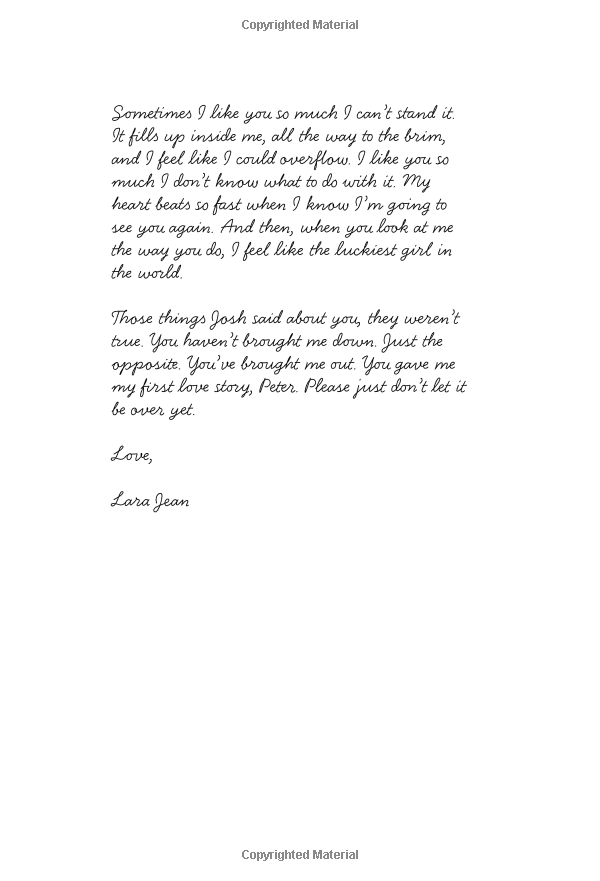 Copyrighted Material
Sometimes I like you so much I can't stand it.
It fills up inside me, all the way to the brim,
and I feel like I could overflow. I like you so
much I don't know what to do with it. My
heart beats so fast when I know I'm going to
see you again. And then, when you look at me
the way you do, I feel like the luckiest girl in
the world.
Those things Josh said about you, they weren't
true. You haven't brought me down. Just the
opposite. You've brought me out. You gave me
my first love story, Peter. Please just don't let it
be over yet.
Love,
Lara Jean
Copyrighted Material